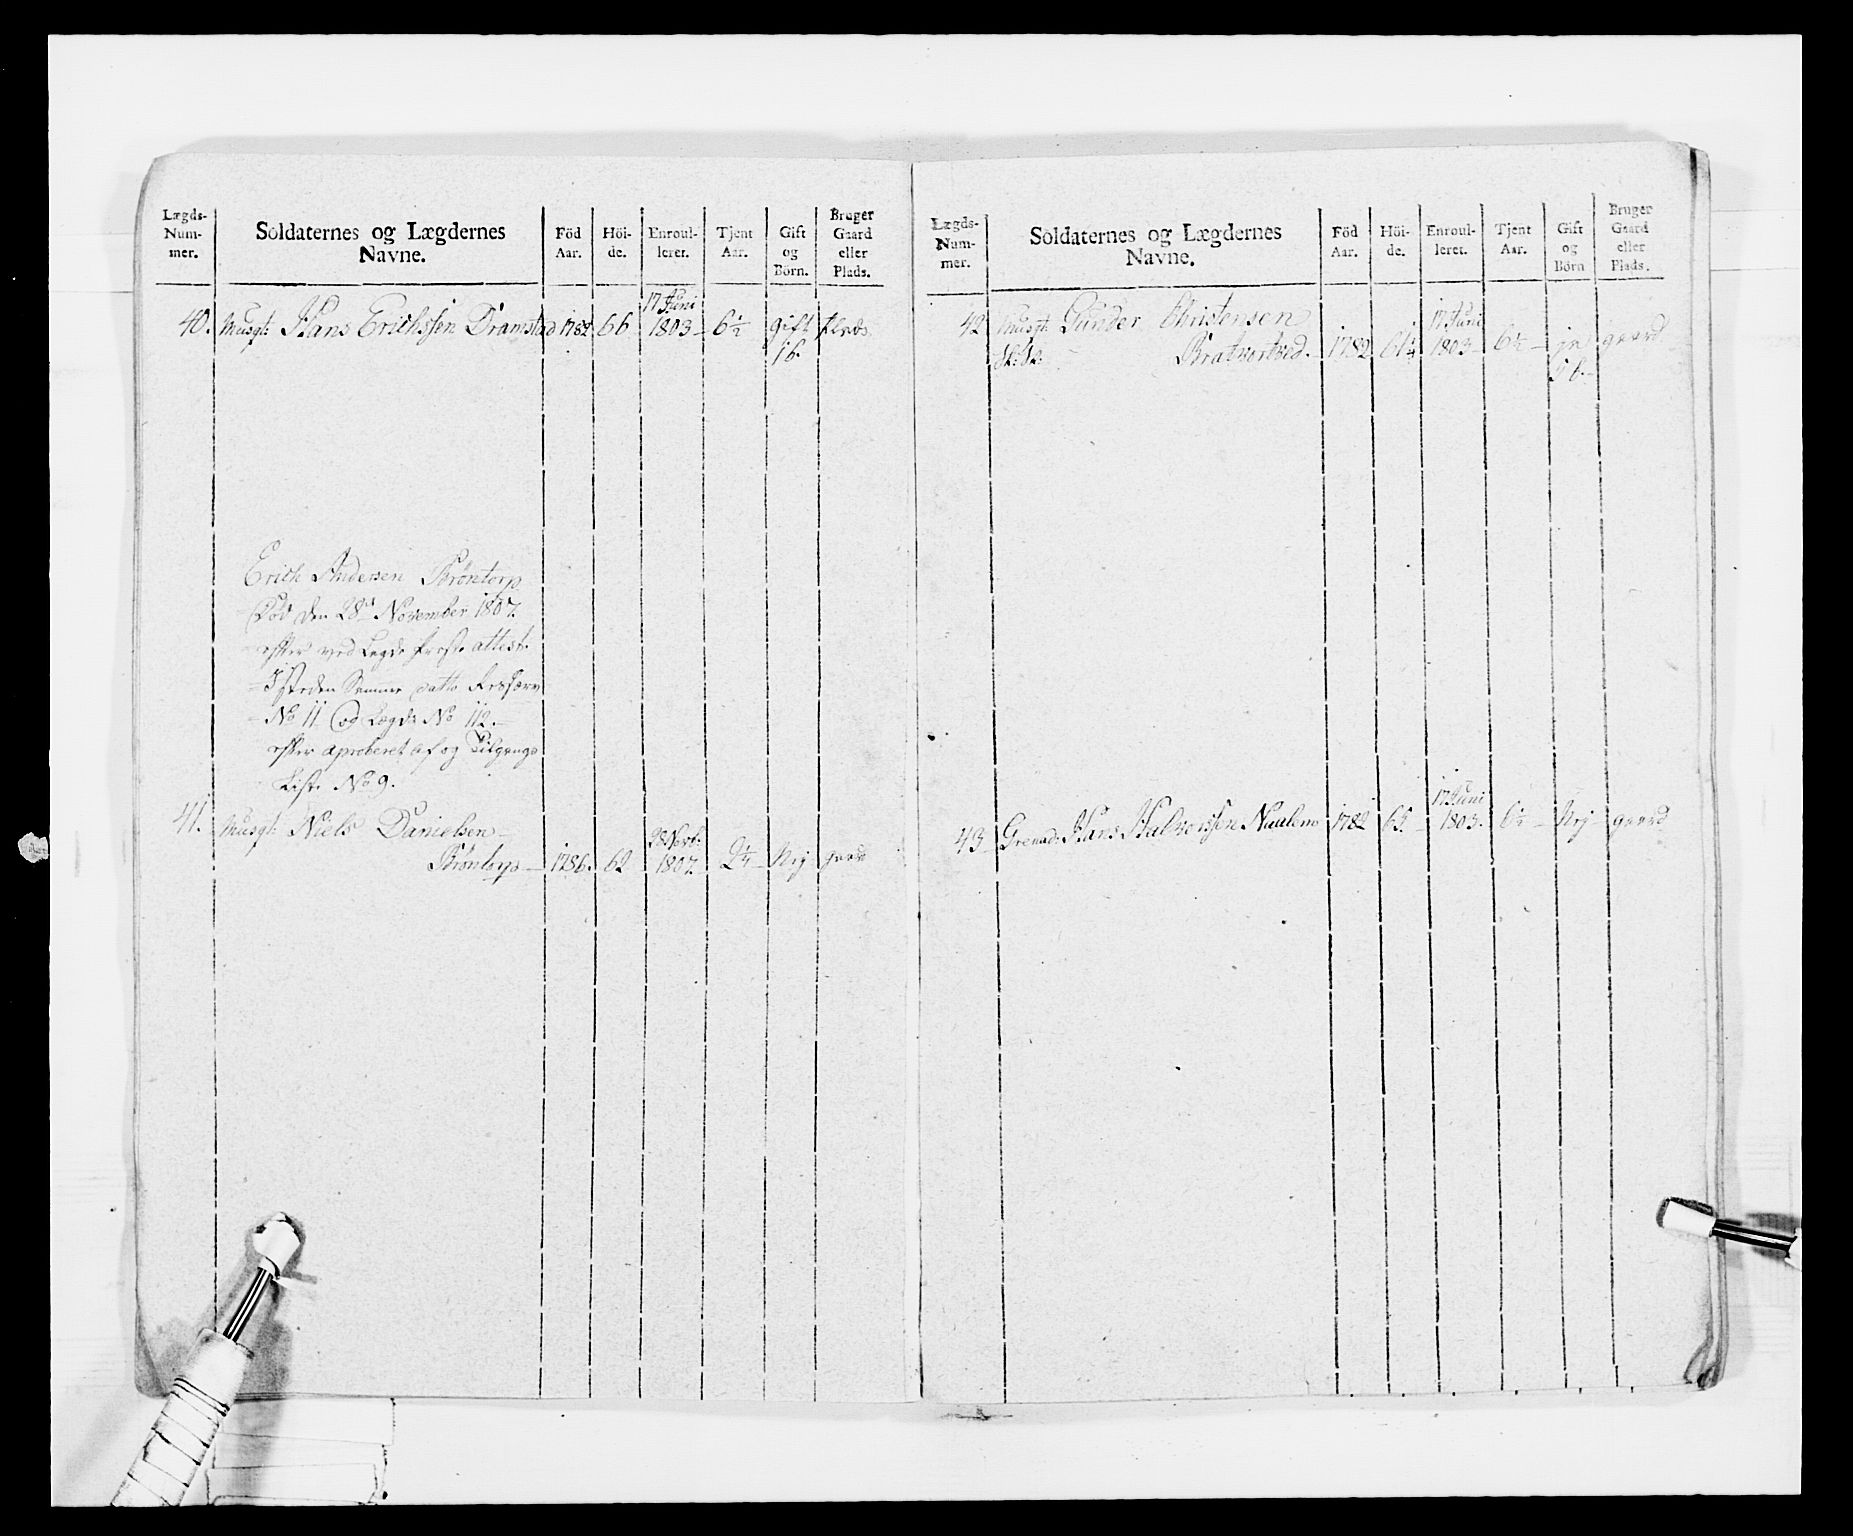 Lægds-Num-mer. Soldaternes og Lægdernes Navne. Föd Aar. Höi-de. Enroul-lerer. Tjent Aar. Gift og Börn. Bruger Gaard eller Plads.
17 Juni
40. Musqt: Hans Erichssen Dramstad 1782 66 1803 6½ gift Plads
1 b.
Erich Andersen Bröntorp
Död den 28de November 1807.
efter ved Lægds attest.
Isteden Samme datto
No 11 og Lægds No 112.
efter aproberet Af og Tilgangs
Liste No 9.
41. Musqt: Niels Danielsen
28 Novb:
Bröntorp 1786. 62 1807. 2¼ Nej gaard
Lægds-Num-mer. Soldaternes og Lægdernes Navne. Föd Aar. Höi-de. Enroul-leret. Tjent Aar. Gift og Börn Bruger Gaard eller Plads.
42 Musqt: Gunder Christensen
17 Juni
Sk: Sk: 1782 61¼ 1803 6½ ja gaard
5 b.
17 Juni
43 Grenad: Hans Halvorssen Naalem 1782 65. 1803. 6½ Nej gaard